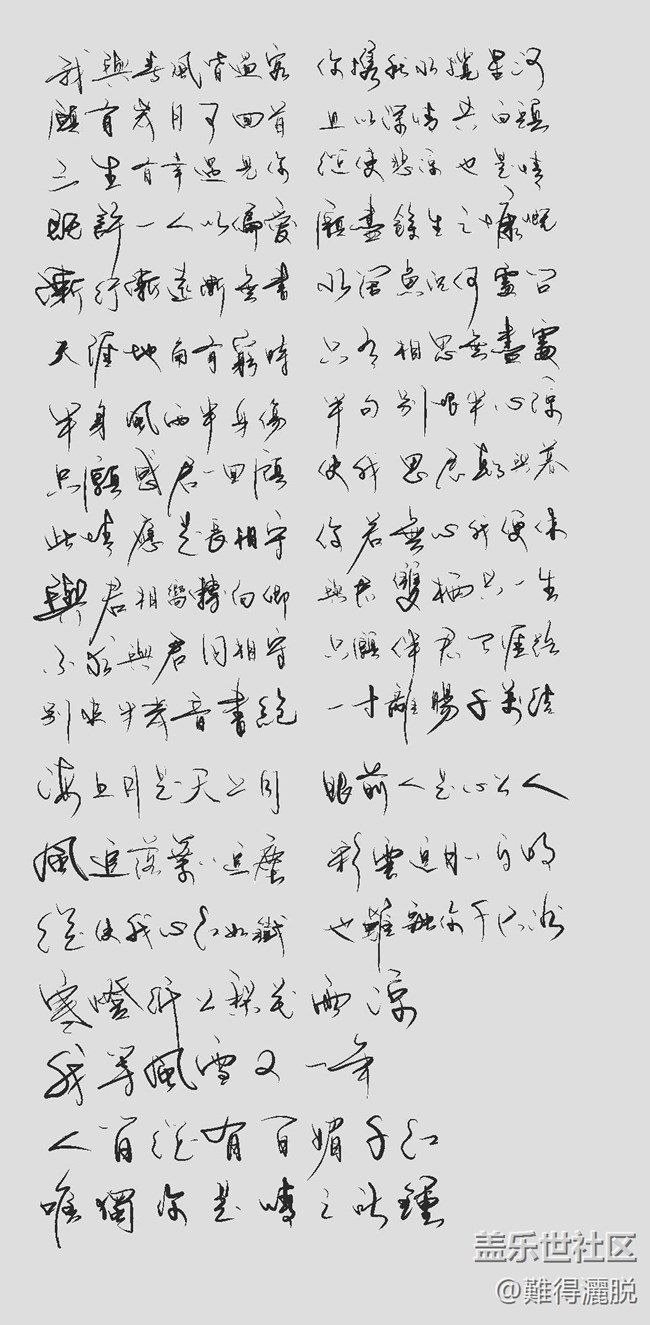 我與春風皆過客 你攜秋水攬星河
願有歲月可回首 且以深情共白頭
三生有幸遇見你 縱使悲涼也是情
既許一人以偏愛 願盡餘生之慷慨
漸行漸遠漸無書 水闊魚沉何處問
天涯地角有窮時 只有相思無盡處
半身風雨半身傷 半句別恨半心涼
只願感君一回顧 使我思君朝與暮
此情應是長相守 你若無心我便休
與君相向轉相卿 與君雙棲共一生
不求與君同相守 只願伴君天涯路
別來半歲音書絕 一寸離腸千萬結
海上月是天上月 眼前人是心上人
風追落葉塵追塵 彩雲追月月自明
縱使我心紅如鐵 也難融你千尺冰
寒燈紙上梨花雨涼
我等風雪又一年
人間縱有百媚千紅
唯獨你是情之所鍾
盖乐世社区
@難得灑脱